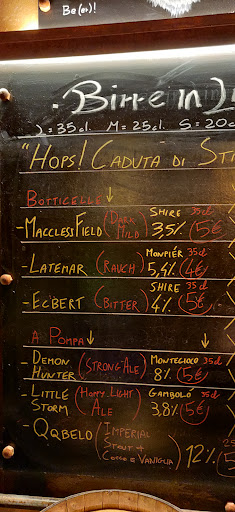 Be(er)!
Birre in
L=35cl. M=25cl. S=20c
"Hops! Caduta di
Botticelle ↓
- Macclessfield (Dark Mild) Shire 35cl 3,5% (5€)
- Latemar (Rauch) Monpiér 35cl 5,4% (4€)
- Ecbert (Bitter) Shire 35cl 4% (5€)
A Pompa ↓ ↓
- Demon Hunter (Strong Ale) Montegioco 35cl 8% (5€)
- Little Storm (Hoppy Light Ale) Gambolò 35cl 3,8% (5€)
- Qqbelo (Imperial Stout + Cocco e Vaniglia) 12%